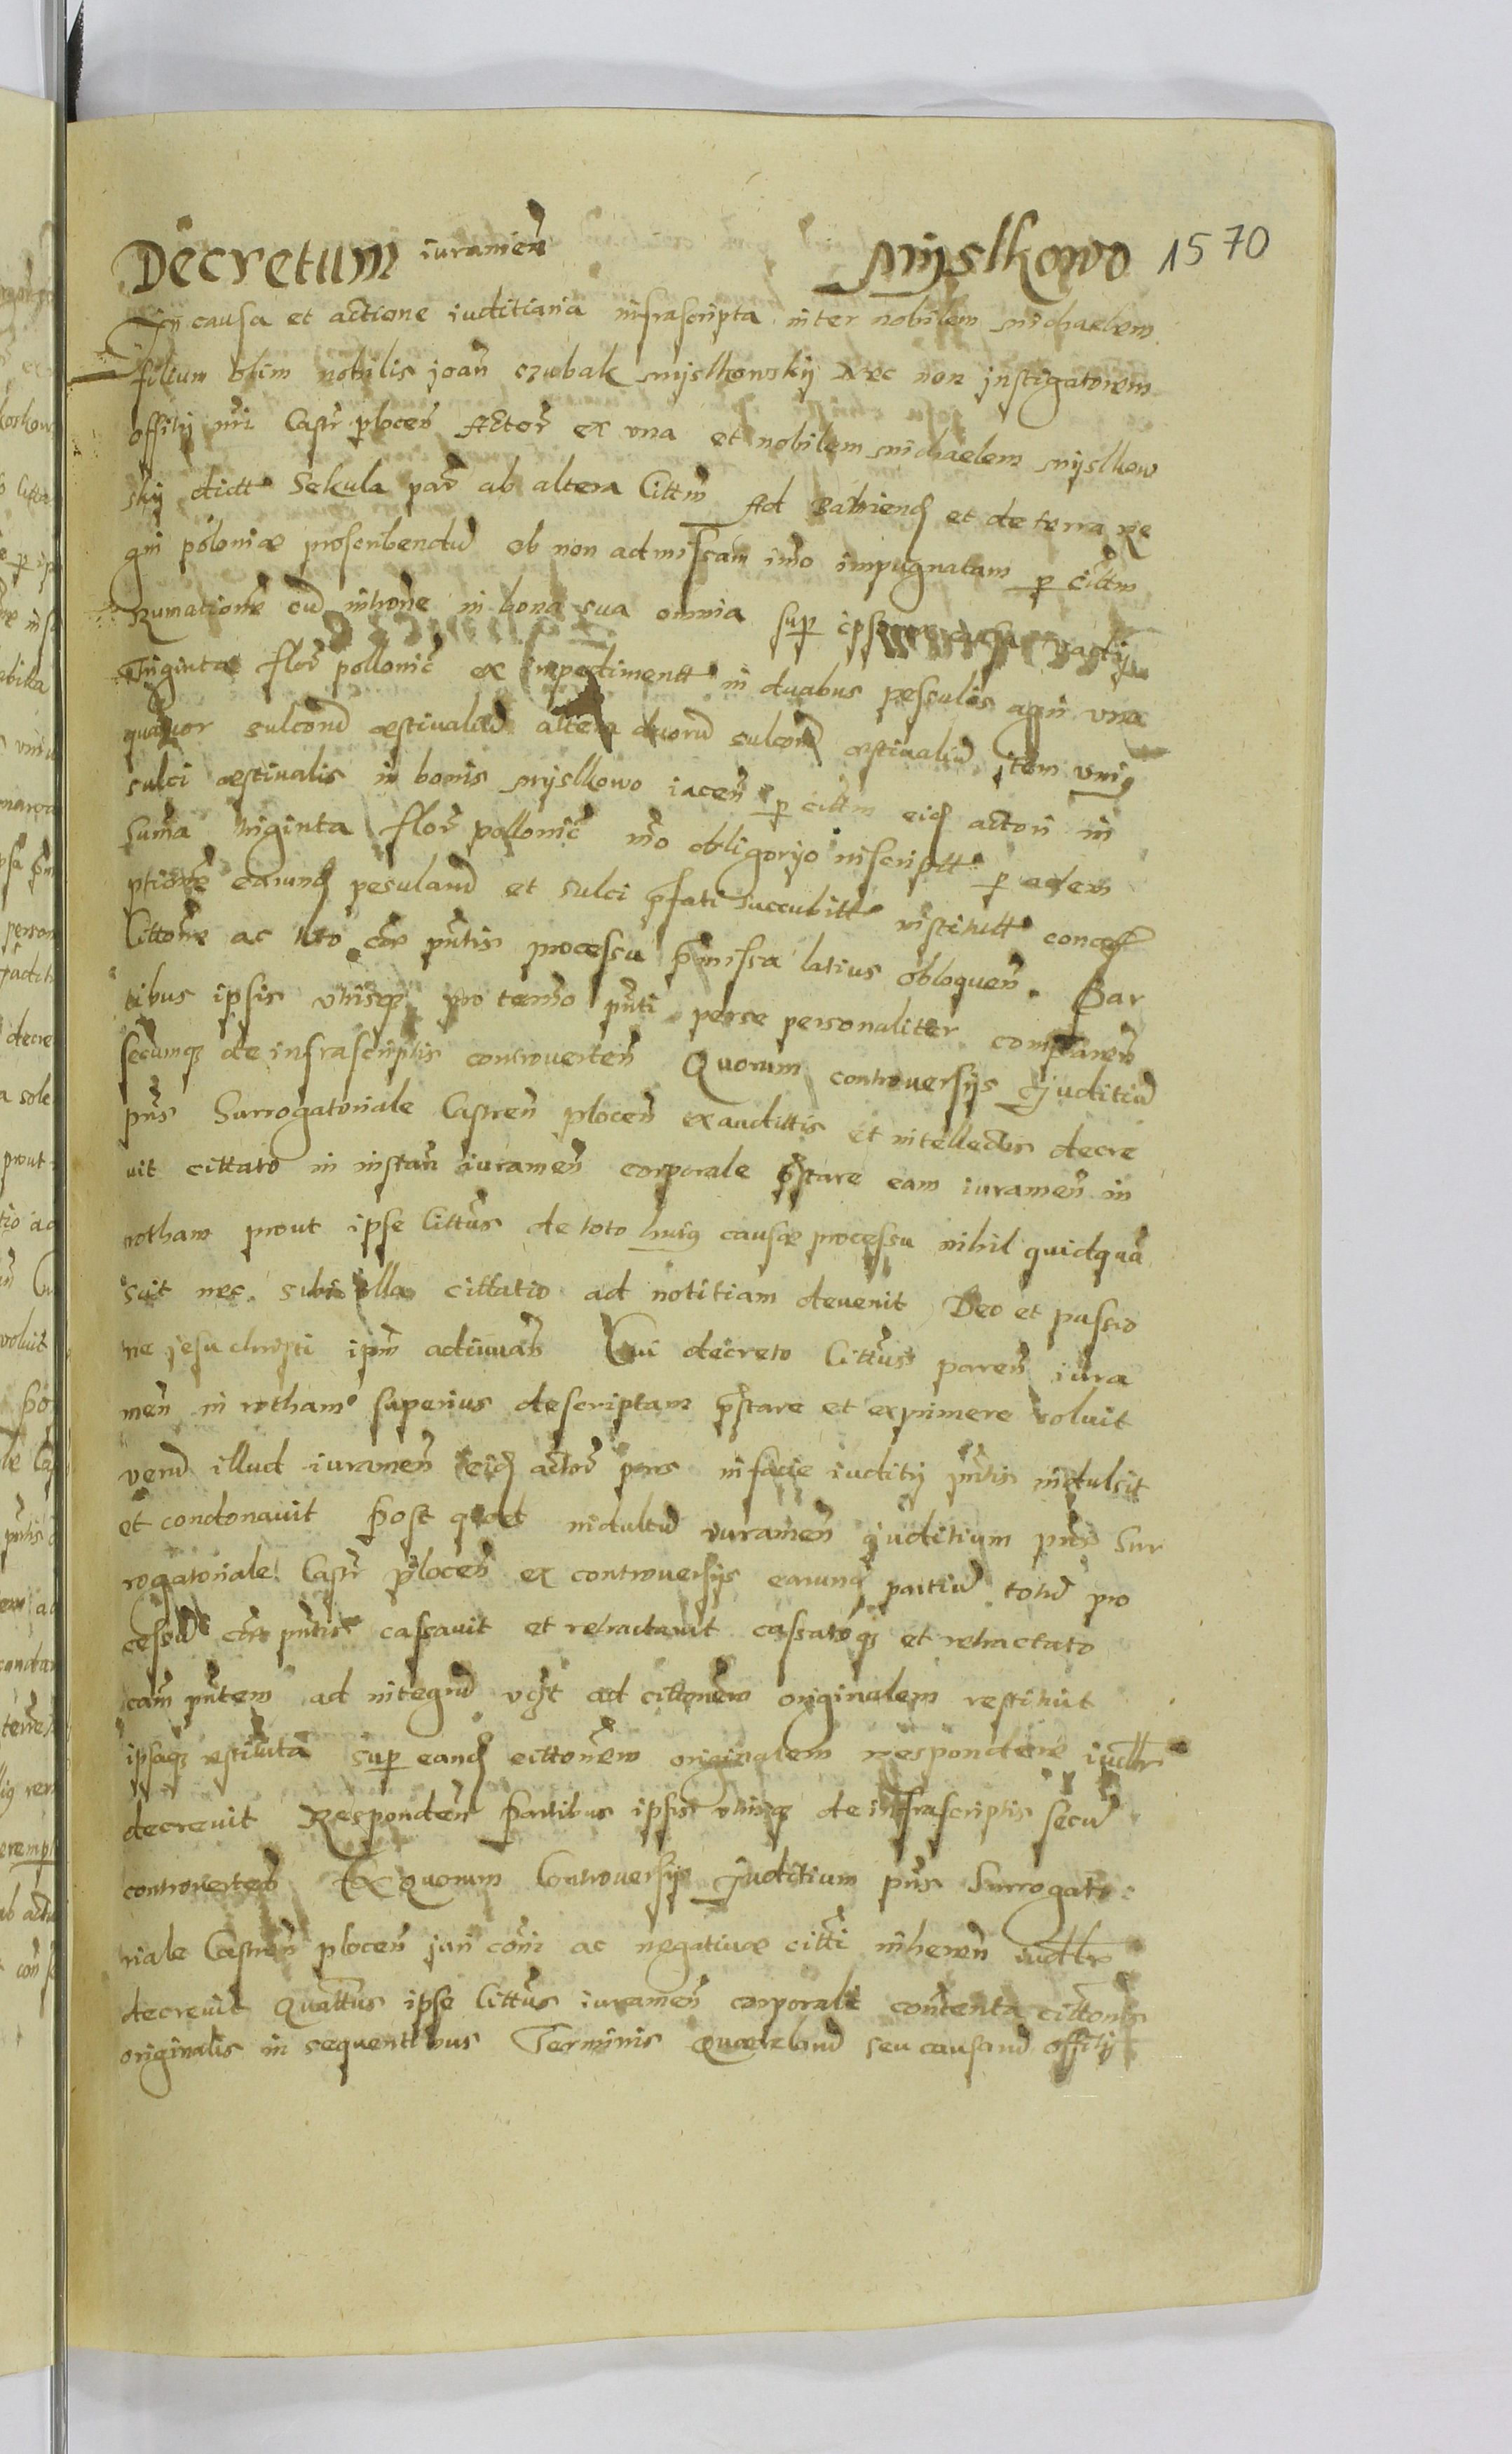 Decretum iuramen̄ Myslkowo 1570
In causa et actione iuditiaria infrascripta inter nobilem michaelem
filium olim nobilis joan̄ czubak myslkowskij Nec non jnstigatorem
offitij nr̄i Castr̄ plocen̄ Actor̄ ex vna et nobilem michaelem myslkow
skij dictt Sekula par̄ ab altera Cittm̄ Ad baniend et de terra Re
gni poloniæ proscribendu͂ ob non admissam imo impugnatam p cittm̄
Rumatione͂ cu͂ in bona sua omnia sup ipso
Triginta flor̄ pollonic̄ ex impedimentt in duabus pessulis agri vna
quatuor sulcoru͂ æstivaliu͂ altera duoru͂ sulcoru͂ æstivaliu͂ item vniꝯ
sulci æstivalis in bonis myslkowo iacen̄ p cittm̄ eid actori in
sum̄a triginta flor̄ pollonic̄ mō obligorijo inscriptt p adem
ptione͂ earund pesularu͂ et sulci p̄fati succubitt institutt concess
Cittone͂ ac toto cāe pn̄tis processu p̄missa latius obloquen̄. Par
tibus ipsis vtrisq pro termo pn̄ti perse personaliter comparen̄
secumq de infrascriptis controverten̄ Quorum controversijs Juditiu͂
pn̄s Surrogatoriale Castren̄ plocen̄ exaudittis et intellectis decre
vit cittato in instan̄ iuramen̄ corporale p̄stare eam iuramen̄ in
rotham prout ipse Cittus̄ de toto huiꝯ causæ processu nihil quidqua͂
scit nec sibi illa cittatio ad notitiam devenit Deo et passio
ne jesu christi ipm̄ adiuuan̄ Cui decreto Cittus̄ paren̄ iura
men̄ in rotham superius descriptam p̄stare et exprimere voluit
veru͂ illud iuramen̄ eid actor̄ pars in facie iuditij pn̄tis indulsit
et condonavit Post quod indultu͂ iuramen̄ juditium pn̄s Sur
rogatoriale Castr̄ plocen̄ ex controversijs earund partiu͂ totu͂ pro
cessu͂ cāe pn̄tis cassavit et retractavit cassatoq et retractato
cam̄ pn̄tem ad integru͂ vt ad cittonem originalem restituit
ipsaq restituta sup eand cittonem originalem respondere iudlr
decrevit Responden̄ Partibus ipsis vtrisq de infrascriptis secu͂
controverten̄ Ex Quorum Controversijs Juditium pn̄s Surrogato
riale Castren̄ plocen̄ juri com̄i ac negativæ citti inheren̄ iudlr
decrevit Quattus ipse Cittus̄ iuramen̄ corporali contenta cittonis
originalis in sequentibus Terminis Quærelaru͂ seu causaru͂ offitij